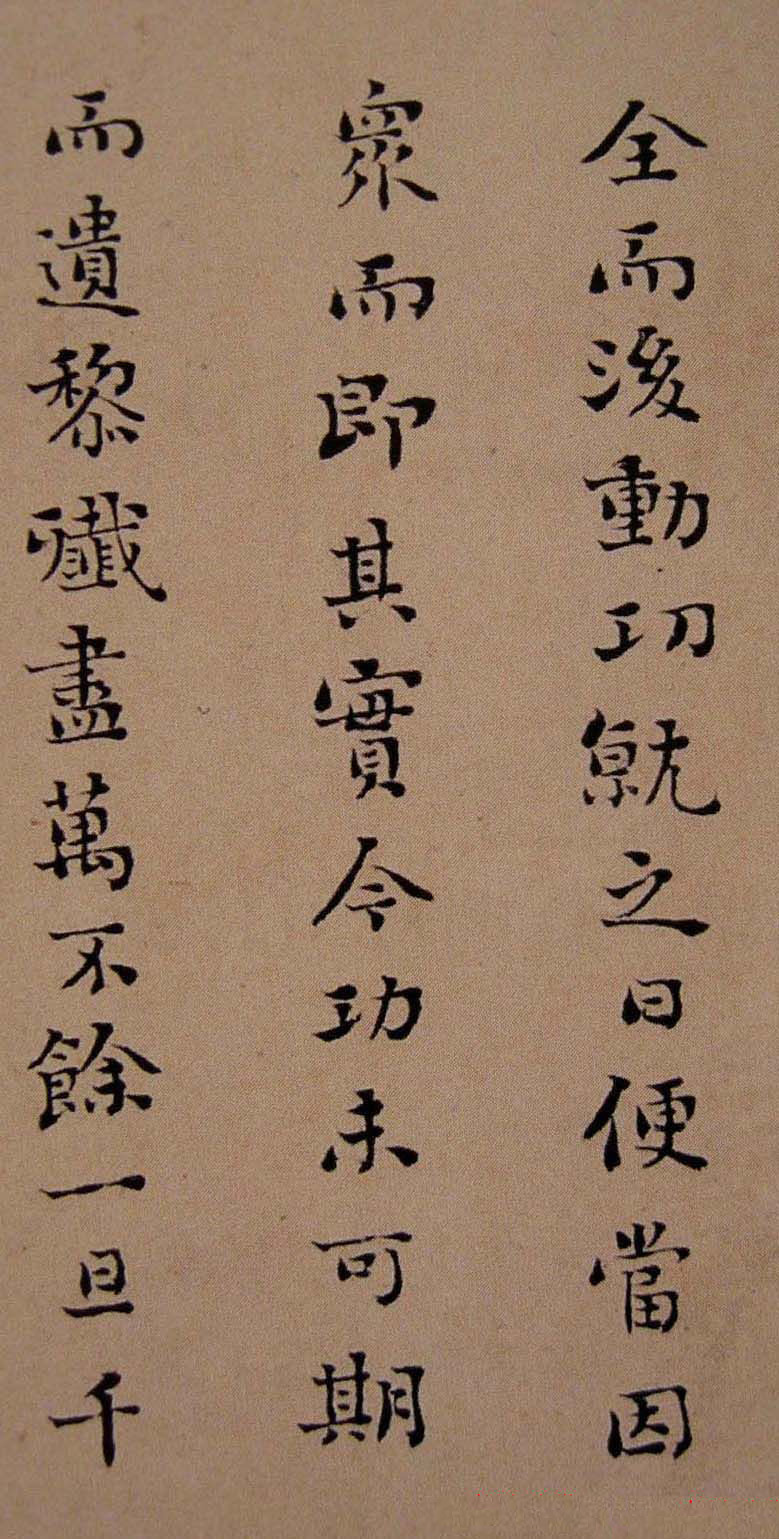 全而後動功就之日便當因
衆而即其實今功未可期
而遺黎殲盡萬不餘一旦千